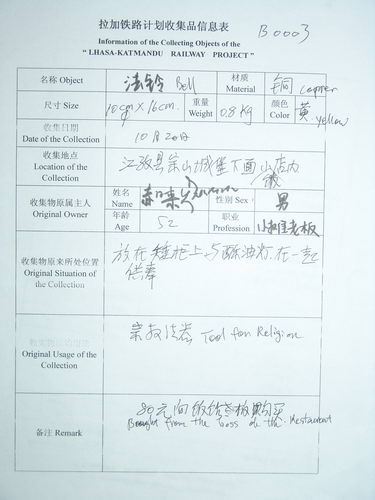 拉加铁路计划收集品信息表
B0003
Information of the Collecting Objects of the
" LHASA-KATMANDU RAILWAY PROJECT "
名称 Object 法铃 Bell 材质 Material 铜 copper
尺寸 Size 10cm X 16cm. 重量 Weight 0.8 Kg 颜色 Color 黄 yellow
收集日期
Date of the Collection
10月20日
收集地点
Location of the
Collection
江孜县宗山城堡下面小店内
收集物原属主人
Original Owner
姓名 Name 性别 Sex 男
年龄 Age 52 职业 Profession 老板
收集物原来所处位置
Original Situation of
the Collection
放在矮柜上与酥油灯在一起
供奉
Original Usage of the
Collection
宗教法器 Tool for Religion
备注 Remark
80元
Bought from the boss of the Restaurant